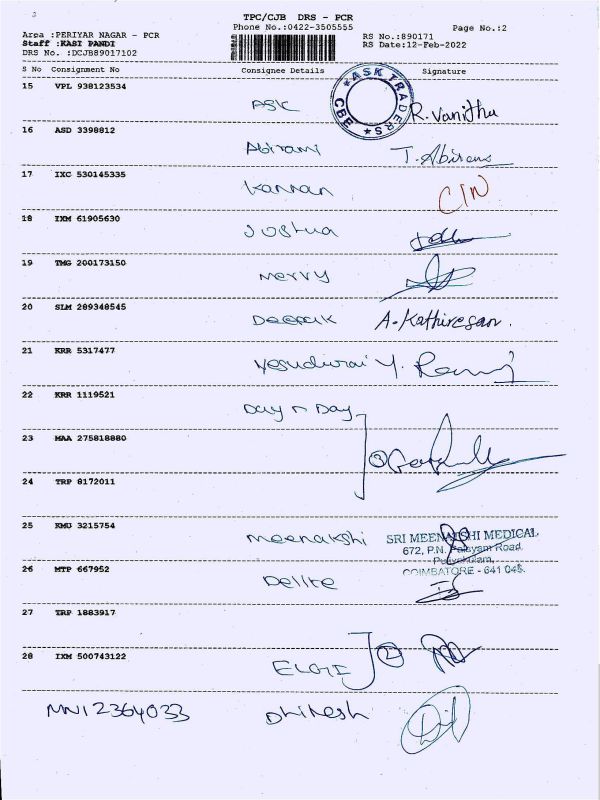 TPC/CJB DRS - PCR
Phone No.:0422-3505555 Page No.:2
Area :PERIYAR NAGAR - PCR RS No.:890171
Staff :KASI PANDI RS Date:12-Feb-2022
DRS No. :DCJB89017102
S No Consignment No Consignee Details Signature
15 VPL 938123534
ASK ASK TRADERS CBE R. Vanitha
16 ASD 3398812
Abirami T. Abirami
17 IXC 530145335
Kannan
18 IXM 61905630
Joshua
19 TMG 200173150
Merry
20 SLM 289348545
Deepak A. Kathiresan.
21 KRR 5317477
Yesudurai Y.
22 KRR 1119521
Day n Day
23 MAA 275818880
3
24 TRP 8172011
25 KMU 3215754
Meenakshi SRI MEENAKSHI MEDICAL
672, P.N. Palayam Road,
COIMBATORE - 641 045.
26 MTP 667952
Delite
27 TRP 1883917
28 IXM 500743122
ELGI 2
MNI 2364033 Dhinesh